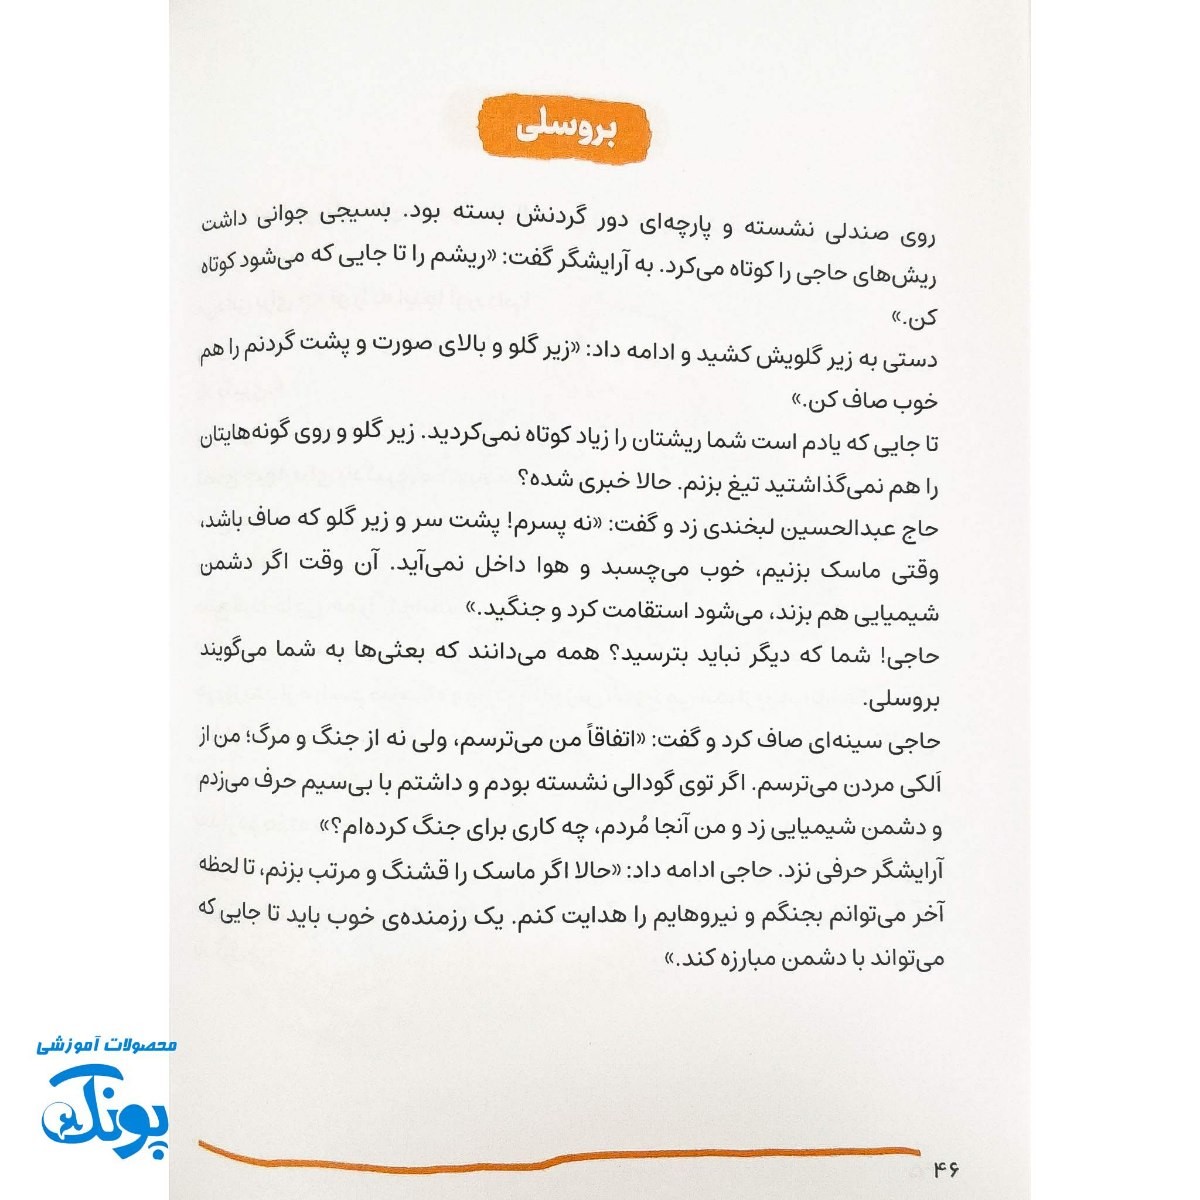 بروسلی
روی صندلی نشسته و پارچه‌ای دور گردنش بسته بود. بسیجی جوانی داشت
ریش‌های حاجی را کوتاه می‌کرد. به آرایشگر گفت: «ریشم را تا جایی که می‌شود کوتاه
کن.»
دستی به زیر گلویش کشید و ادامه داد: «زیر گلو و بالای صورت و پشت گردنم را هم
خوب صاف کن.»
تا جایی که یادم است شما ریشتان را زیاد کوتاه نمی‌کردید. زیر گلو و روی گونه‌هایتان
را هم نمی‌گذاشتید تیغ بزنم. حالا خبری شده؟
حاج عبدالحسین لبخندی زد و گفت: «نه پسرم! پشت سر و زیر گلو که صاف باشد،
وقتی ماسک بزنیم، خوب می‌چسبد و هوا داخل نمی‌آید. آن وقت اگر دشمن
شیمیایی هم بزند، می‌شود استقامت کرد و جنگید.»
حاجی! شما که دیگر نباید بترسید؟ همه می‌دانند که بعثی‌ها به شما می‌گویند
بروسلی.
حاجی سینه‌ای صاف کرد و گفت: «اتفاقاً من می‌ترسم، ولی نه از جنگ و مرگ؛ من از
اَلکی مردن می‌ترسم. اگر توی گودالی نشسته بودم و داشتم با بی‌سیم حرف می‌زدم
و دشمن شیمیایی زد و من آنجا مُردم، چه کاری برای جنگ کرده‌ام؟»
آرایشگر حرفی نزد. حاجی ادامه داد: «حالا اگر ماسک را قشنگ و مرتب بزنم، تا لحظه
آخر می‌توانم بجنگم و نیروهایم را هدایت کنم. یک رزمنده‌ی خوب باید تا جایی که
می‌تواند با دشمن مبارزه کند.»
محصولات آموزشی
پونک
۴۶